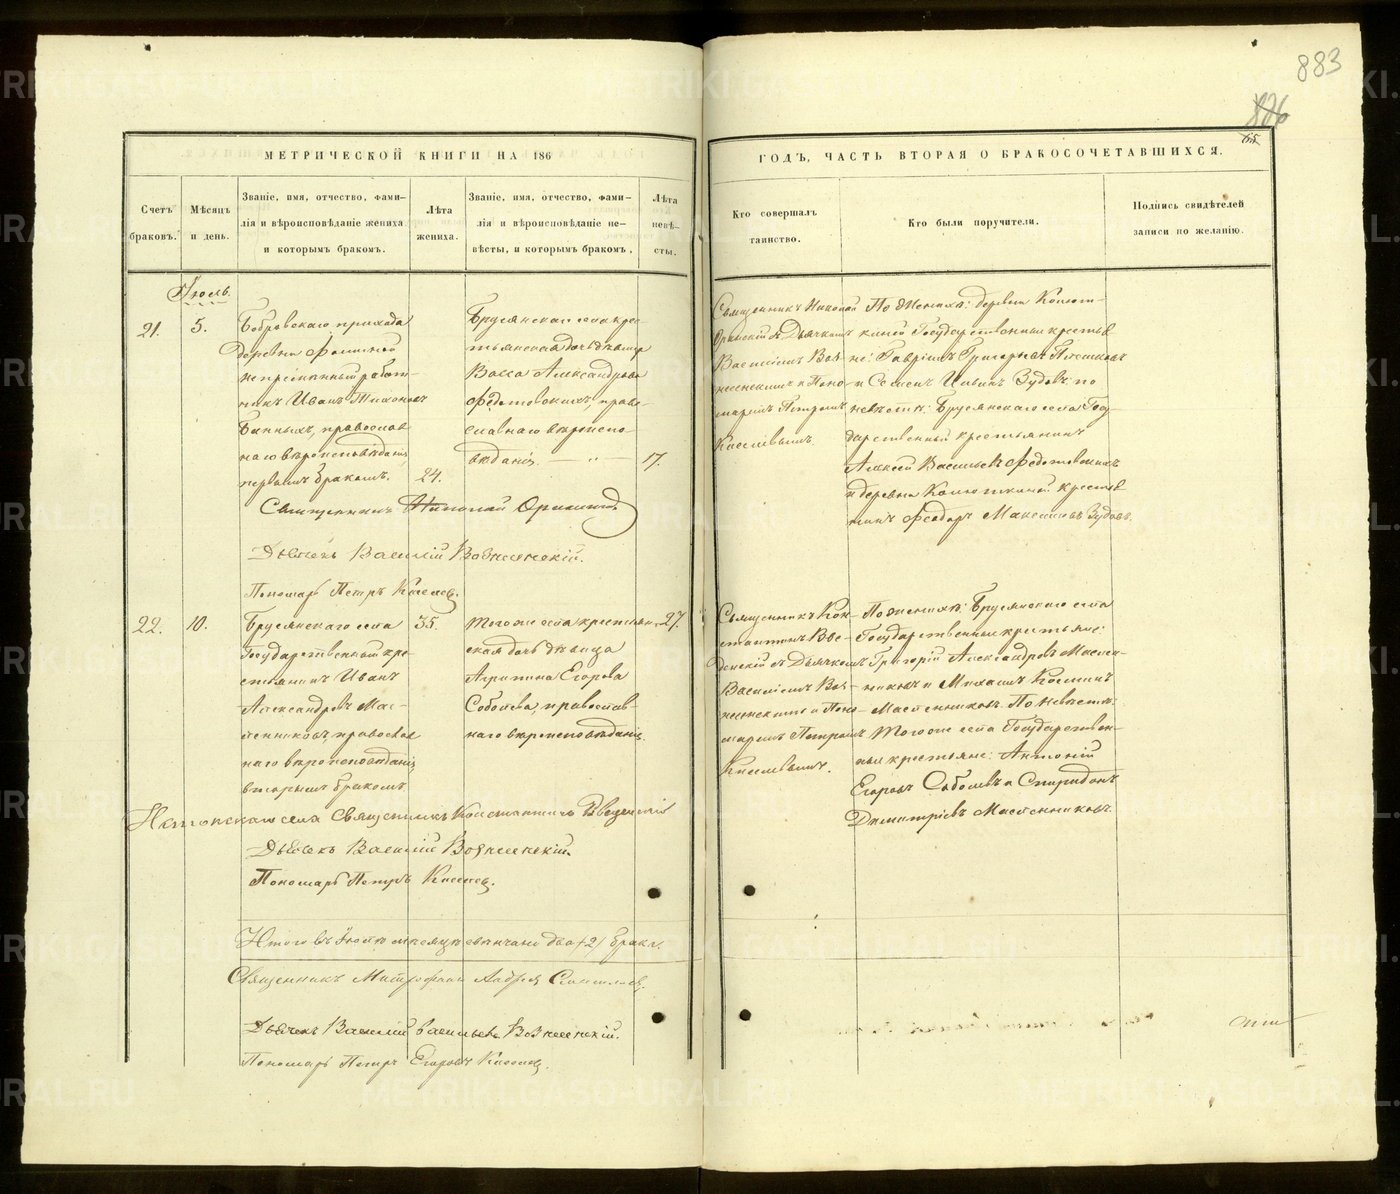 883
826
65
МЕТРИЧЕСКОЙ КНИГИ НА 186
ГОДЪ, ЧАСТЬ ВТОРАЯ О БРАКОСОЧЕТАВШИХСЯ.
Счетъ браковъ.
Мѣсяцъ и день.
Званіе, имя, отчество, фами-
лія и вѣроисповѣданіе жениха
и которымъ бракомъ.
Лѣта
жениха.
Званіе, имя, отчество, фами-
лія и вѣроисповѣданіе не-
вѣсты, и которымъ бракомъ.
Лѣта
невѣ-
сты.
Кто совершалъ
таинство.
Кто были поручители.
Подпись свидѣтелей
записи по желанію.
Іюль.
21.
5.
Бобровскаго прихода
деревни
непремѣнный работ-
никъ Иванъ Тихоновъ
Банныхъ, православ
наго вѣроисповѣданія
первымъ бракомъ.
24.
Брусянскаго села крес-
тьянская дочь дѣвица
Васса Александрова
Федотовскихъ, право-
славнаго вѣроиспо-
вѣданія. — „ —
17.
Священникъ Николай
съ Дьячкомъ
Василіемъ Воз-
несенскимъ и Поно-
маремъ Петромъ
Киселевымъ
По женихѣ: деревни Колют-
киной Государственные крестья
не: Гавріилъ Григорьевъ
и Семенъ Зудовъ; по
невѣстѣ: Брусянскаго села Госу-
дарственный крестьянинъ
Алексѣй Васильевъ Федотовскихъ
и деревни Колюткиной крестья
нинъ Феодоръ Максимовъ Зудовъ.
Священникъ Николай
Дьячекъ Василій Вознесенскій.
Пономарь Петръ Киселев.
22.
10.
Брусянскаго села
Государственный кре-
стьянинъ Иванъ
Александровъ Мас-
ленниковъ, православ
наго вѣроисповѣданія,
вторымъ бракомъ.
35.
Того же села крестьян-
ская дочь дѣвица
Агрипина Егорова
Соболева, православ-
наго вѣроисповѣданія.
27.
Священникъ Кон-
стантинъ Вве-
денскій съ Дьячкомъ
Василіемъ Воз-
несенскимъ и Поно-
маремъ Петромъ
Киселевымъ.
По женихѣ: Брусянскаго села
Государственные крестьяне:
Григорій Александровъ Маслен-
никовъ и Михаилъ Космин
Масленниковъ. По невѣстѣ:
Того же села Государствен-
ные крестьяне: Антоній
Егоровъ Соболевъ и Спиридонъ
Димитріевъ Масленниковъ.
села Священникъ Константинъ Введенскій
Дьячекъ Василій Вознесенскій.
Пономарь Петръ Киселев.
Итого въ Іюлѣ мѣсяцѣ вѣнчано два /2/ брака.
Священникъ Митрофанъ
Дьячекъ Василій Васильевъ Вознесенскій.
Пономарь Петръ Егоровъ Киселев.
METRIKI.GASO-URAL.RU